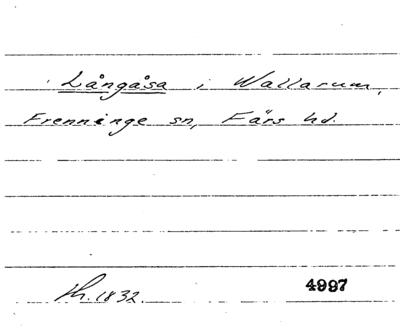 Långåsa i Wallarum,
Frenninge sn, Färs hd.
th. 1832. 4997